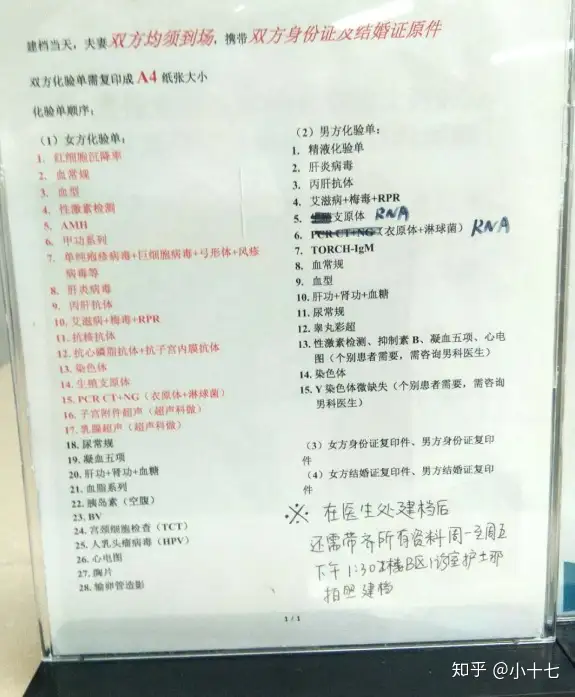 建档当天，夫妻双方均须到场，携带双方身份证及结婚证原件
双方化验单需复印成 A4 纸张大小
化验单顺序：
（1）女方化验单：
1. 红细胞沉降率
2. 血常规
3. 血型
4. 性激素检测
5. AMH
6. 甲功系列
7. 单纯疱疹病毒+巨细胞病毒+弓形体+风疹
病毒等
8. 肝炎病毒
9. 丙肝抗体
10. 艾滋病+梅毒+RPR
11. 抗核抗体
12. 抗心磷脂抗体+抗子宫内膜抗体
13. 染色体
14. 生殖支原体
15. PCR CT+NG（衣原体+淋球菌）
16. 子宫附件超声（超声科做）
17. 乳腺超声（超声科做）
18. 尿常规
19. 凝血五项
20. 肝功+肾功+血糖
21. 血脂系列
22. 胰岛素（空腹）
23. BV
24. 宫颈细胞检查（TCT）
25. 人乳头瘤病毒（HPV）
26. 心电图
27. 胸片
28. 输卵管造影
（2）男方化验单：
1. 精液化验单
2. 肝炎病毒
3. 丙肝抗体
4. 艾滋病+梅毒+RPR
5. 支原体 RNA
6. PCR CT+NG（衣原体+淋球菌） RNA
7. TORCH-IgM
8. 血常规
9. 血型
10. 肝功+肾功+血糖
11. 尿常规
12. 睾丸彩超
13. 性激素检测、抑制素 B、凝血五项、心电
图（个别患者需要，需咨询男科医生）
14. 染色体
15. Y 染色体微缺失（个别患者需要，需咨询
男科医生）
（3）女方身份证复印件、男方身份证复印
件
（4）女方结婚证复印件、男方结婚证复印
件
※ 在医生处建档后
还需带齐所有资料周一至周五
下午1:30 楼B区1诊室护士那
拍照建档
1 / 1
知乎 @小十七